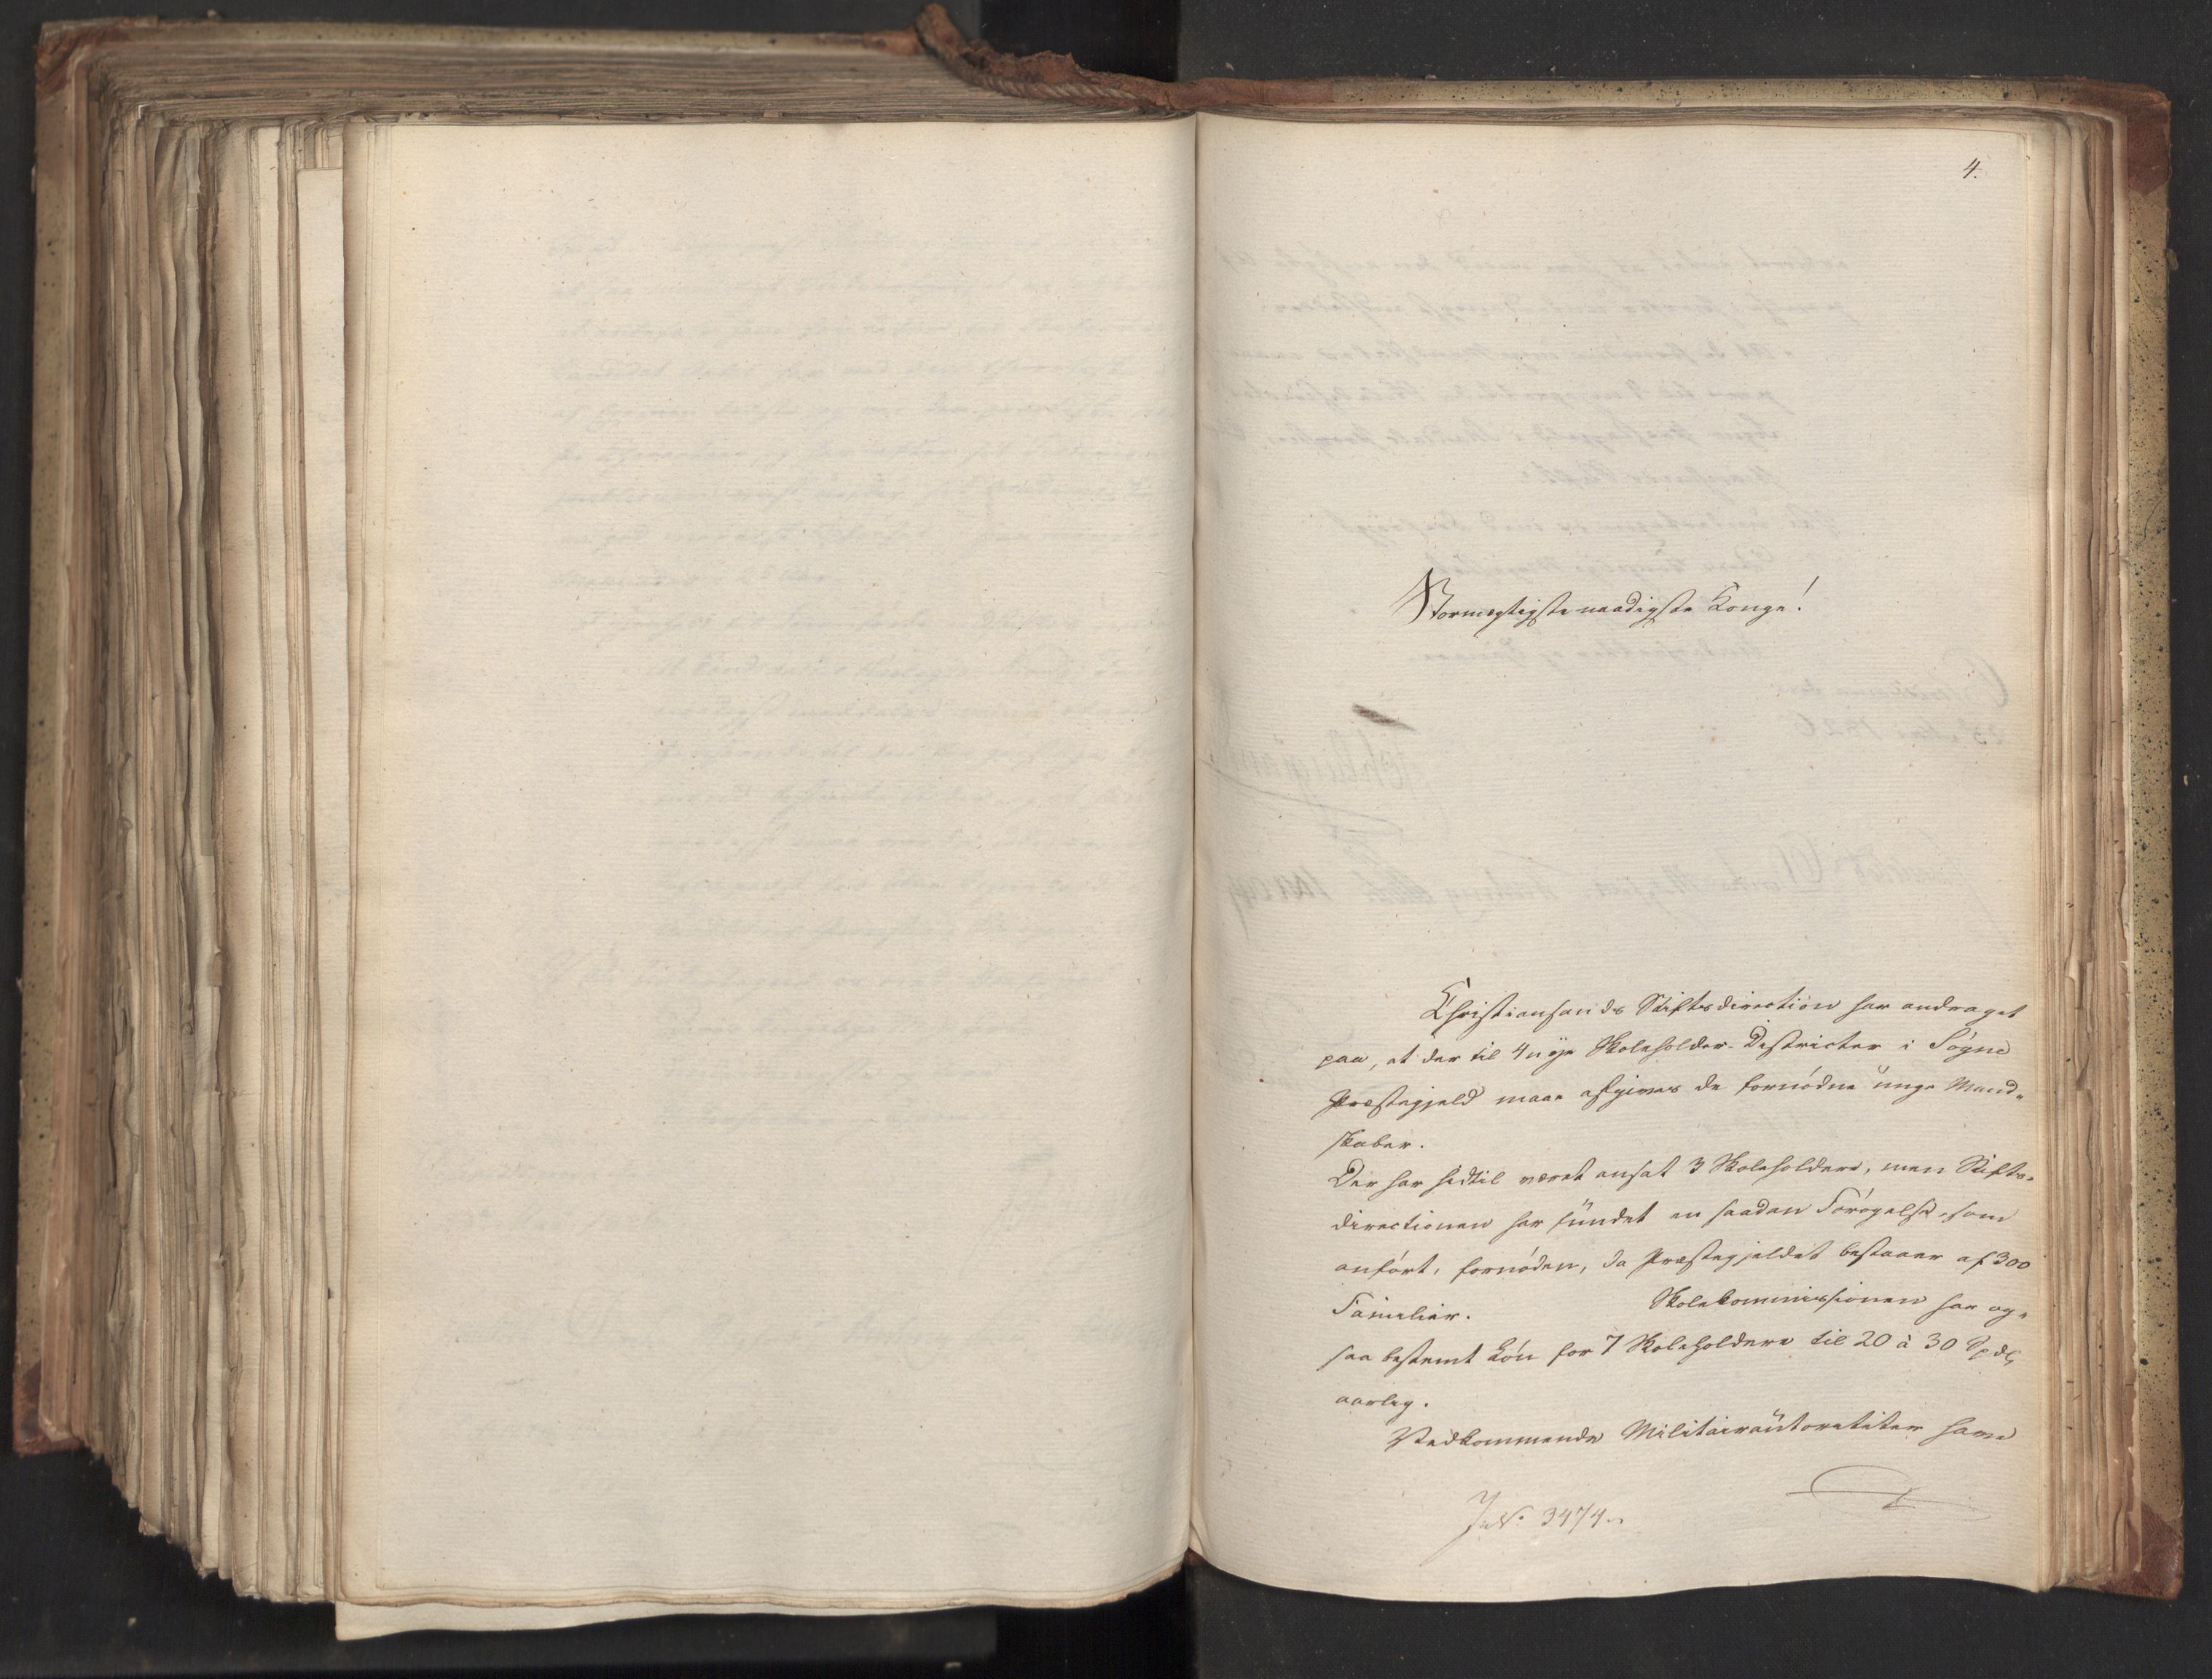 4.
Stormægtigste naadigste Konge!
Christiansands Stiftsdirection har andraget
paa, at der til 4 nye Skoleholder-Districter i Søgne
Præstegjeld maae afgives de fornødne unge Mand„
skaber.
Der har hidtil været ansat 3 Skoleholdere, men Stifts„
directionen har fundet en saadan Forøgelse, som
anført, fornøden, da Præstegjeldet bestaaer af 300
Familier. Skolekommissionen har og„
saa bestemt Løn for 7 Skoleholdere til 20 à 30 Spdlr
aarlig.
Vedkommende Militairautoriteter have
JNo. 3474.